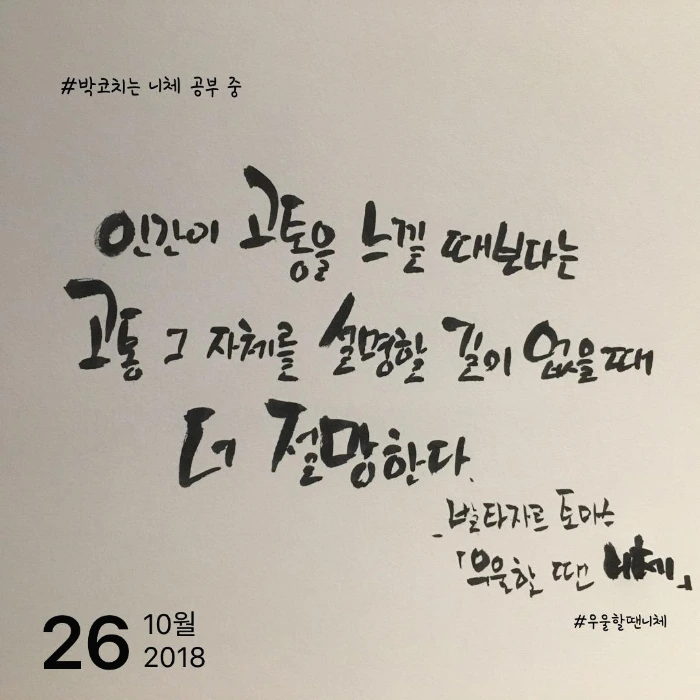 #박코치는 니체 공부 중
인간이 고통을 느낄 때보다는
고통 그 자체를 설명할 길이 없을 때
더 절망한다.
- 발타자르 토마스
「우울할 땐 니체」
#우울할땐니체
26 10월
2018